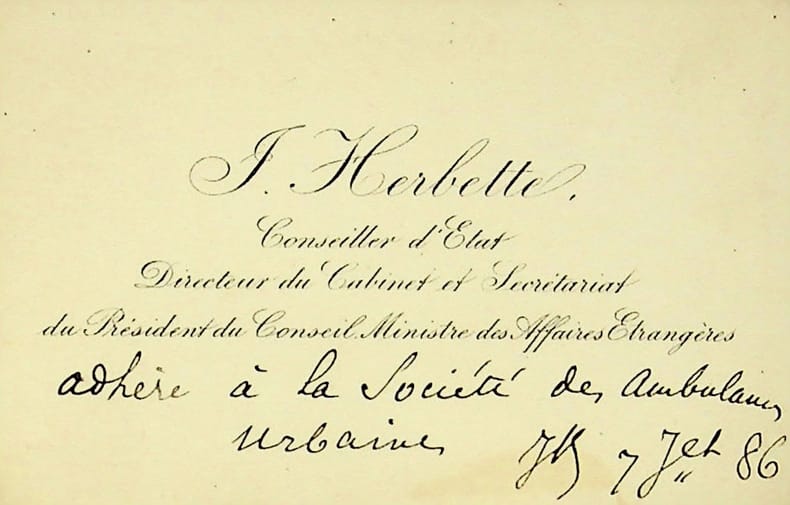 J. Herbette.
Conseiller d'Etat
Directeur du Cabinet et Secrétariat
du Président du Conseil, Ministre des Affaires Etrangères
adhère à la Société des Ambulances
urbaines JH 7 Jet 86